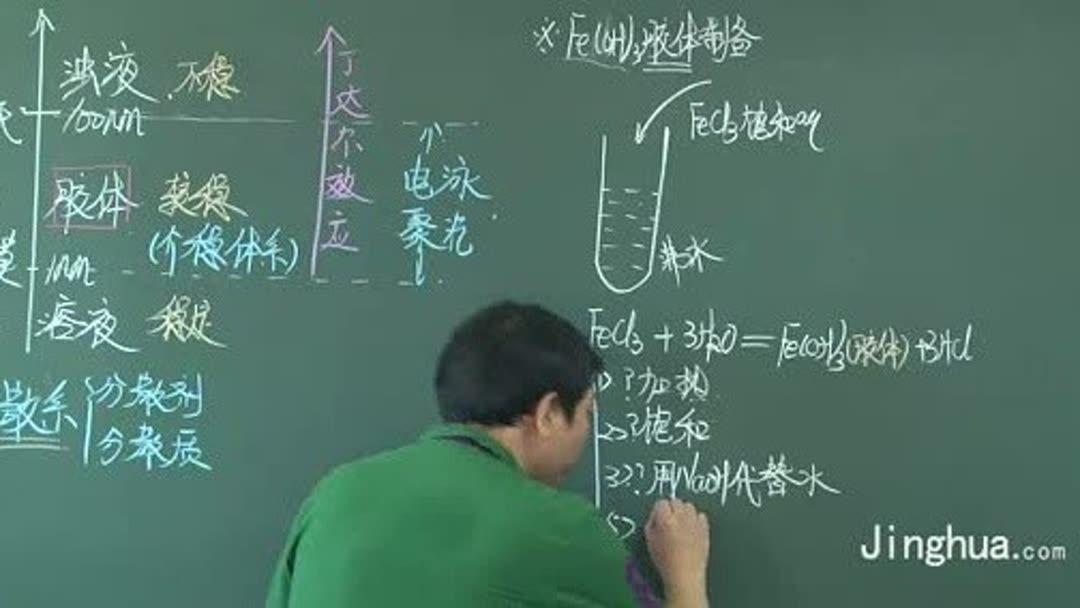 浊液 不稳
100nm
胶体 较稳
(介稳体系)
1nm
溶液 稳定
散系
分散剂
分散质
丁达尔效应
电泳
聚沉
※ Fe(OH)3胶体制备
FeCl3饱和aq
沸水
FeCl3 + 3H2O = Fe(OH)3(胶体) + 3HCl
1)?加热
2)?饱和
3)?用NaOH代替水
Jinghua.com